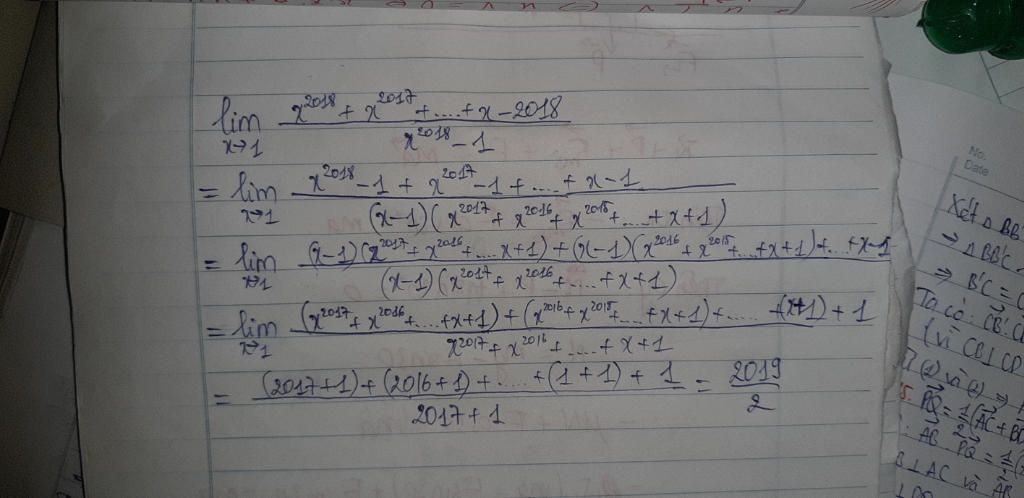 lim x→1 (x^2018 + x^2017 + .... + x - 2018) / (x^2018 - 1)
= lim x→1 (x^2018 - 1 + x^2017 - 1 + .... + x - 1) / ((x-1)(x^2017 + x^2016 + x^2015 + .... + x + 1))
= lim x→1 ((x-1)(x^2017 + x^2016 + .... x+1) + (x-1)(x^2016 + x^2015 + .... + x+1) + .. + x-1) / ((x-1)(x^2017 + x^2016 + .... + x + 1))
= lim x→1 ((x^2017 + x^2016 + .... + x+1) + (x^2016 + x^2015 + .... + x+1) + ..... + (x+1) + 1) / (x^2017 + x^2016 + .... + x + 1)
= ((2017+1) + (2016+1) + .... + (1+1) + 1) / (2017+1) = 2019/2
No.
Date
Xét △ BB'
→ △ BB'C
⇒ B'C = 
Ta có:
(vì CB⊥CD
Từ (1) và (2) ⇒
5. PQ = 1/2 (AC + BD
AC PQ = 1/2
B⊥AC và AB